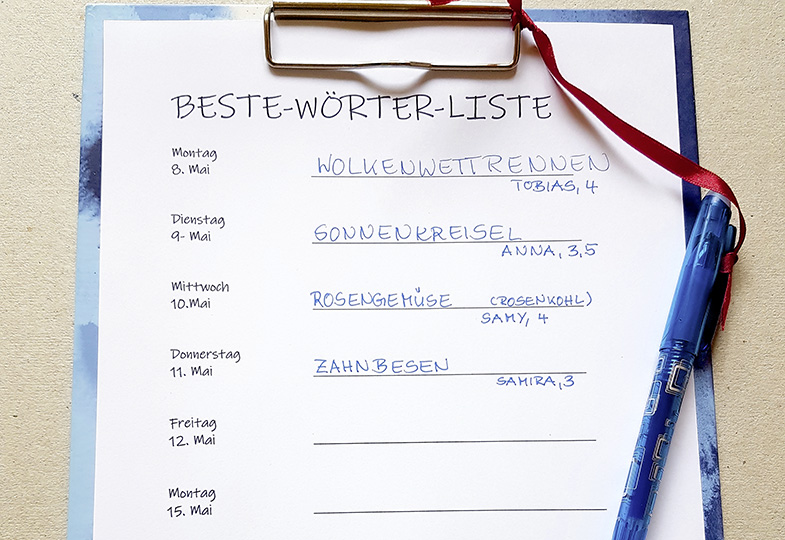 BESTE-WÖRTER-LISTE
Montag
8. Mai
WOLKENWETTRENNEN
TOBIAS, 4
Dienstag
9- Mai
SONNENKREISEL
ANNA, 3,5
Mittwoch
10.Mai
ROSENGEMÜSE (ROSENKOHL)
SAMY, 4
Donnerstag
11. Mai
ZAHNBESEN
SAMIRA, 3
Freitag
12. Mai
Montag
15. Mai